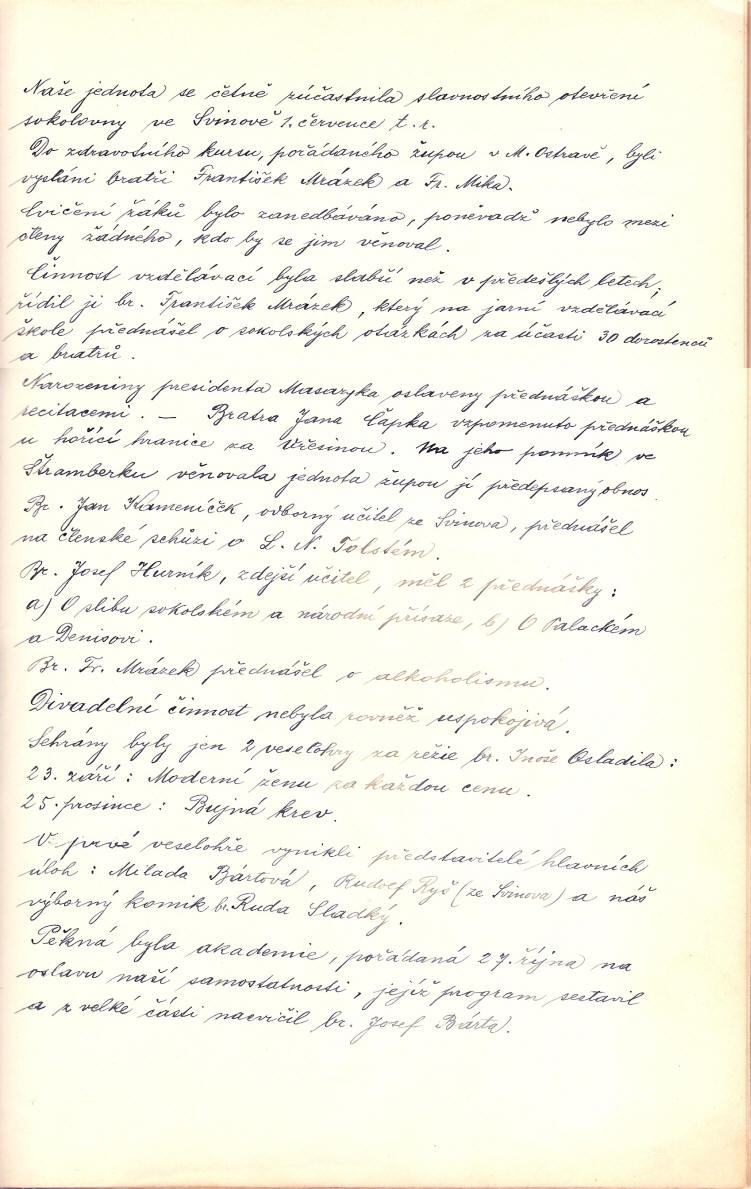 Naše jednota se četně zúčastnila slavnostního otevření
sokolovny ve Svinově 1. července t. r.
Do zdravotního kursu, pořádaného župou v M. Ostravě, byli
vysláni bratři František Mrázek a Fr. Mika.
Cvičení žáků bylo zanedbáváno, poněvadž nebylo mezi
členy žádného, kdo by se jim věnoval.
Činnost vzdělávací byla slabší než v předešlých letech;
řídil ji br. František Mrázek, který na jarní vzdělávací
škole přednášel o sokolských otázkách za účasti 30 dorostenců
a bratrů.
Narozeniny presidenta Masaryka oslaveny přednáškou a
recitacemi. — Bratra Jana Čapka vzpomenuto přednáškou
u hořící hranice za Vřesinou. Na jeho pomník ve
Štramberku věnovala jednota župou jí předepsaný obnos.
Br. Jan Kameníček, odborný učitel ze Svinova, přednášel
na členské schůzi o L. N. Tolstém.
Br. Josef Hurník, zdejší učitel, měl 2 přednášky:
a) O slibu sokolském a národní přísaze, b) O Palackém
a Denisovi.
Br. Fr. Mrázek přednášel o alkoholismu.
Divadelní činnost nebyla rovněž uspokojivá.
Sehrány byly jen 2 veselohry za režie br. Inoše Osladila:
23. září: Moderní ženu za každou cenu.
25. prosince: Bujná krev.
V prvé veselohře vynikli představitelé hlavních
úloh: Milada Bártová, Rudolf Ryš (ze Svinova) a náš
výborný komik br. Ruda Sladký.
Pěkná byla akademie, pořádaná 27. října na
oslavu naší samostatnosti, jejíž program sestavil
a z velké části nacvičil br. Josef Bárta.